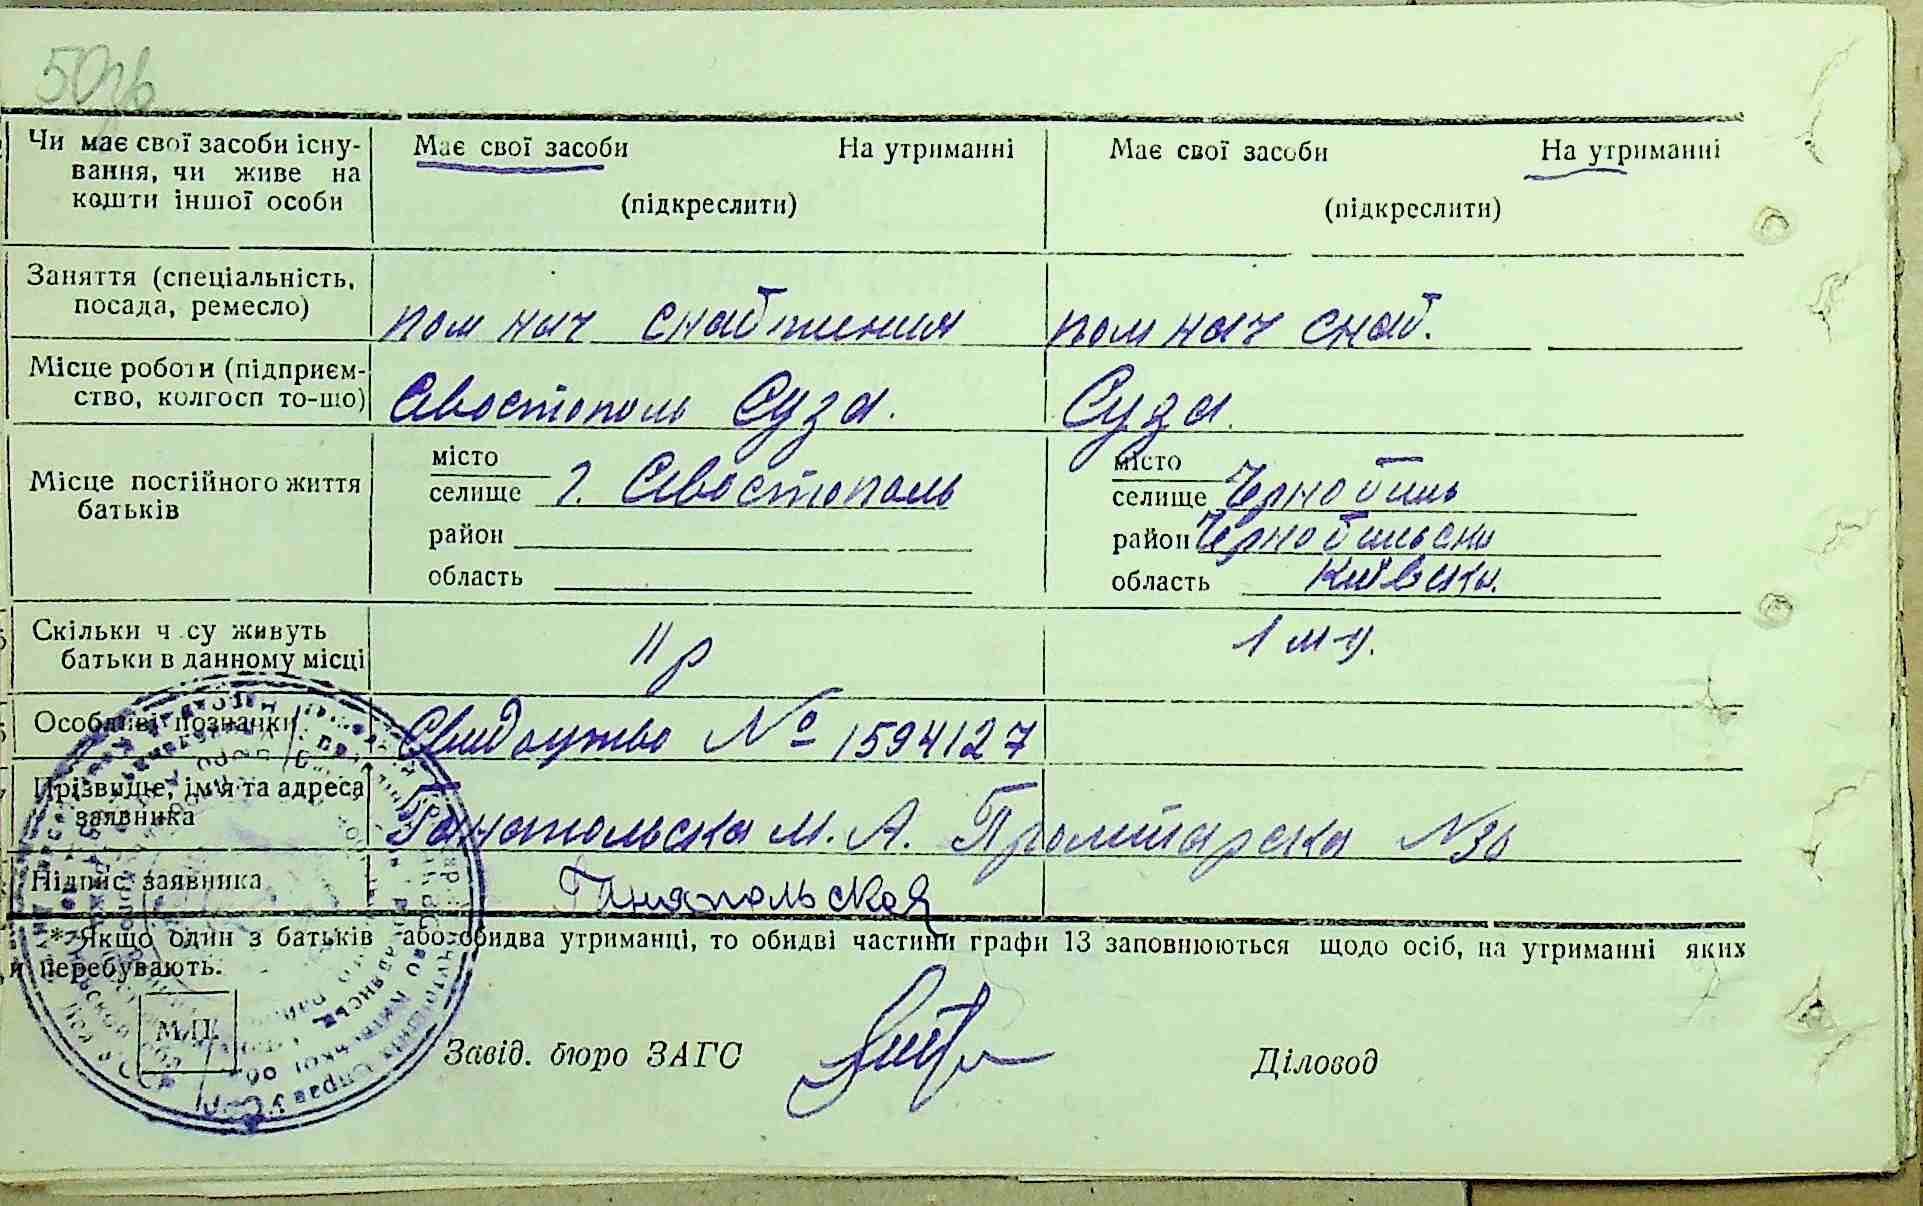 50зв
Чи має свої засоби існу-
вання, чи живе на
кошти іншої особи
Має свої засоби На утриманні
(підкреслити)
Має свої засоби На утриманні
(підкреслити)
Заняття (спеціальність,
посада, ремесло)
пом нач снабжения
пом нач снаб.
Місце роботи (підприєм-
ство, колгосп то-що)
Севостополь Суза.
Суза.
Місце постійного життя
батьків
місто
селище г. Севостополь
район
область
місто
селище Чернобиль
район Чернобильски
область Київска.
Скільки ч су живуть
батьки в данному місці
11 р
1 м-ц.
Особливі позначки
Свидоцтво № 1594127
Прізвище, ім'я та адреса
заявника
Ганапольска М. А. Пролетарска № 30
Підпис заявника
Ганапольская
* Якщо один з батьків або обидва утриманці, то обидві частини графи 13 заповнюються щодо осіб, на утриманні яких
перебувають.
М.П.
Завід. бюро ЗАГС
Діловод